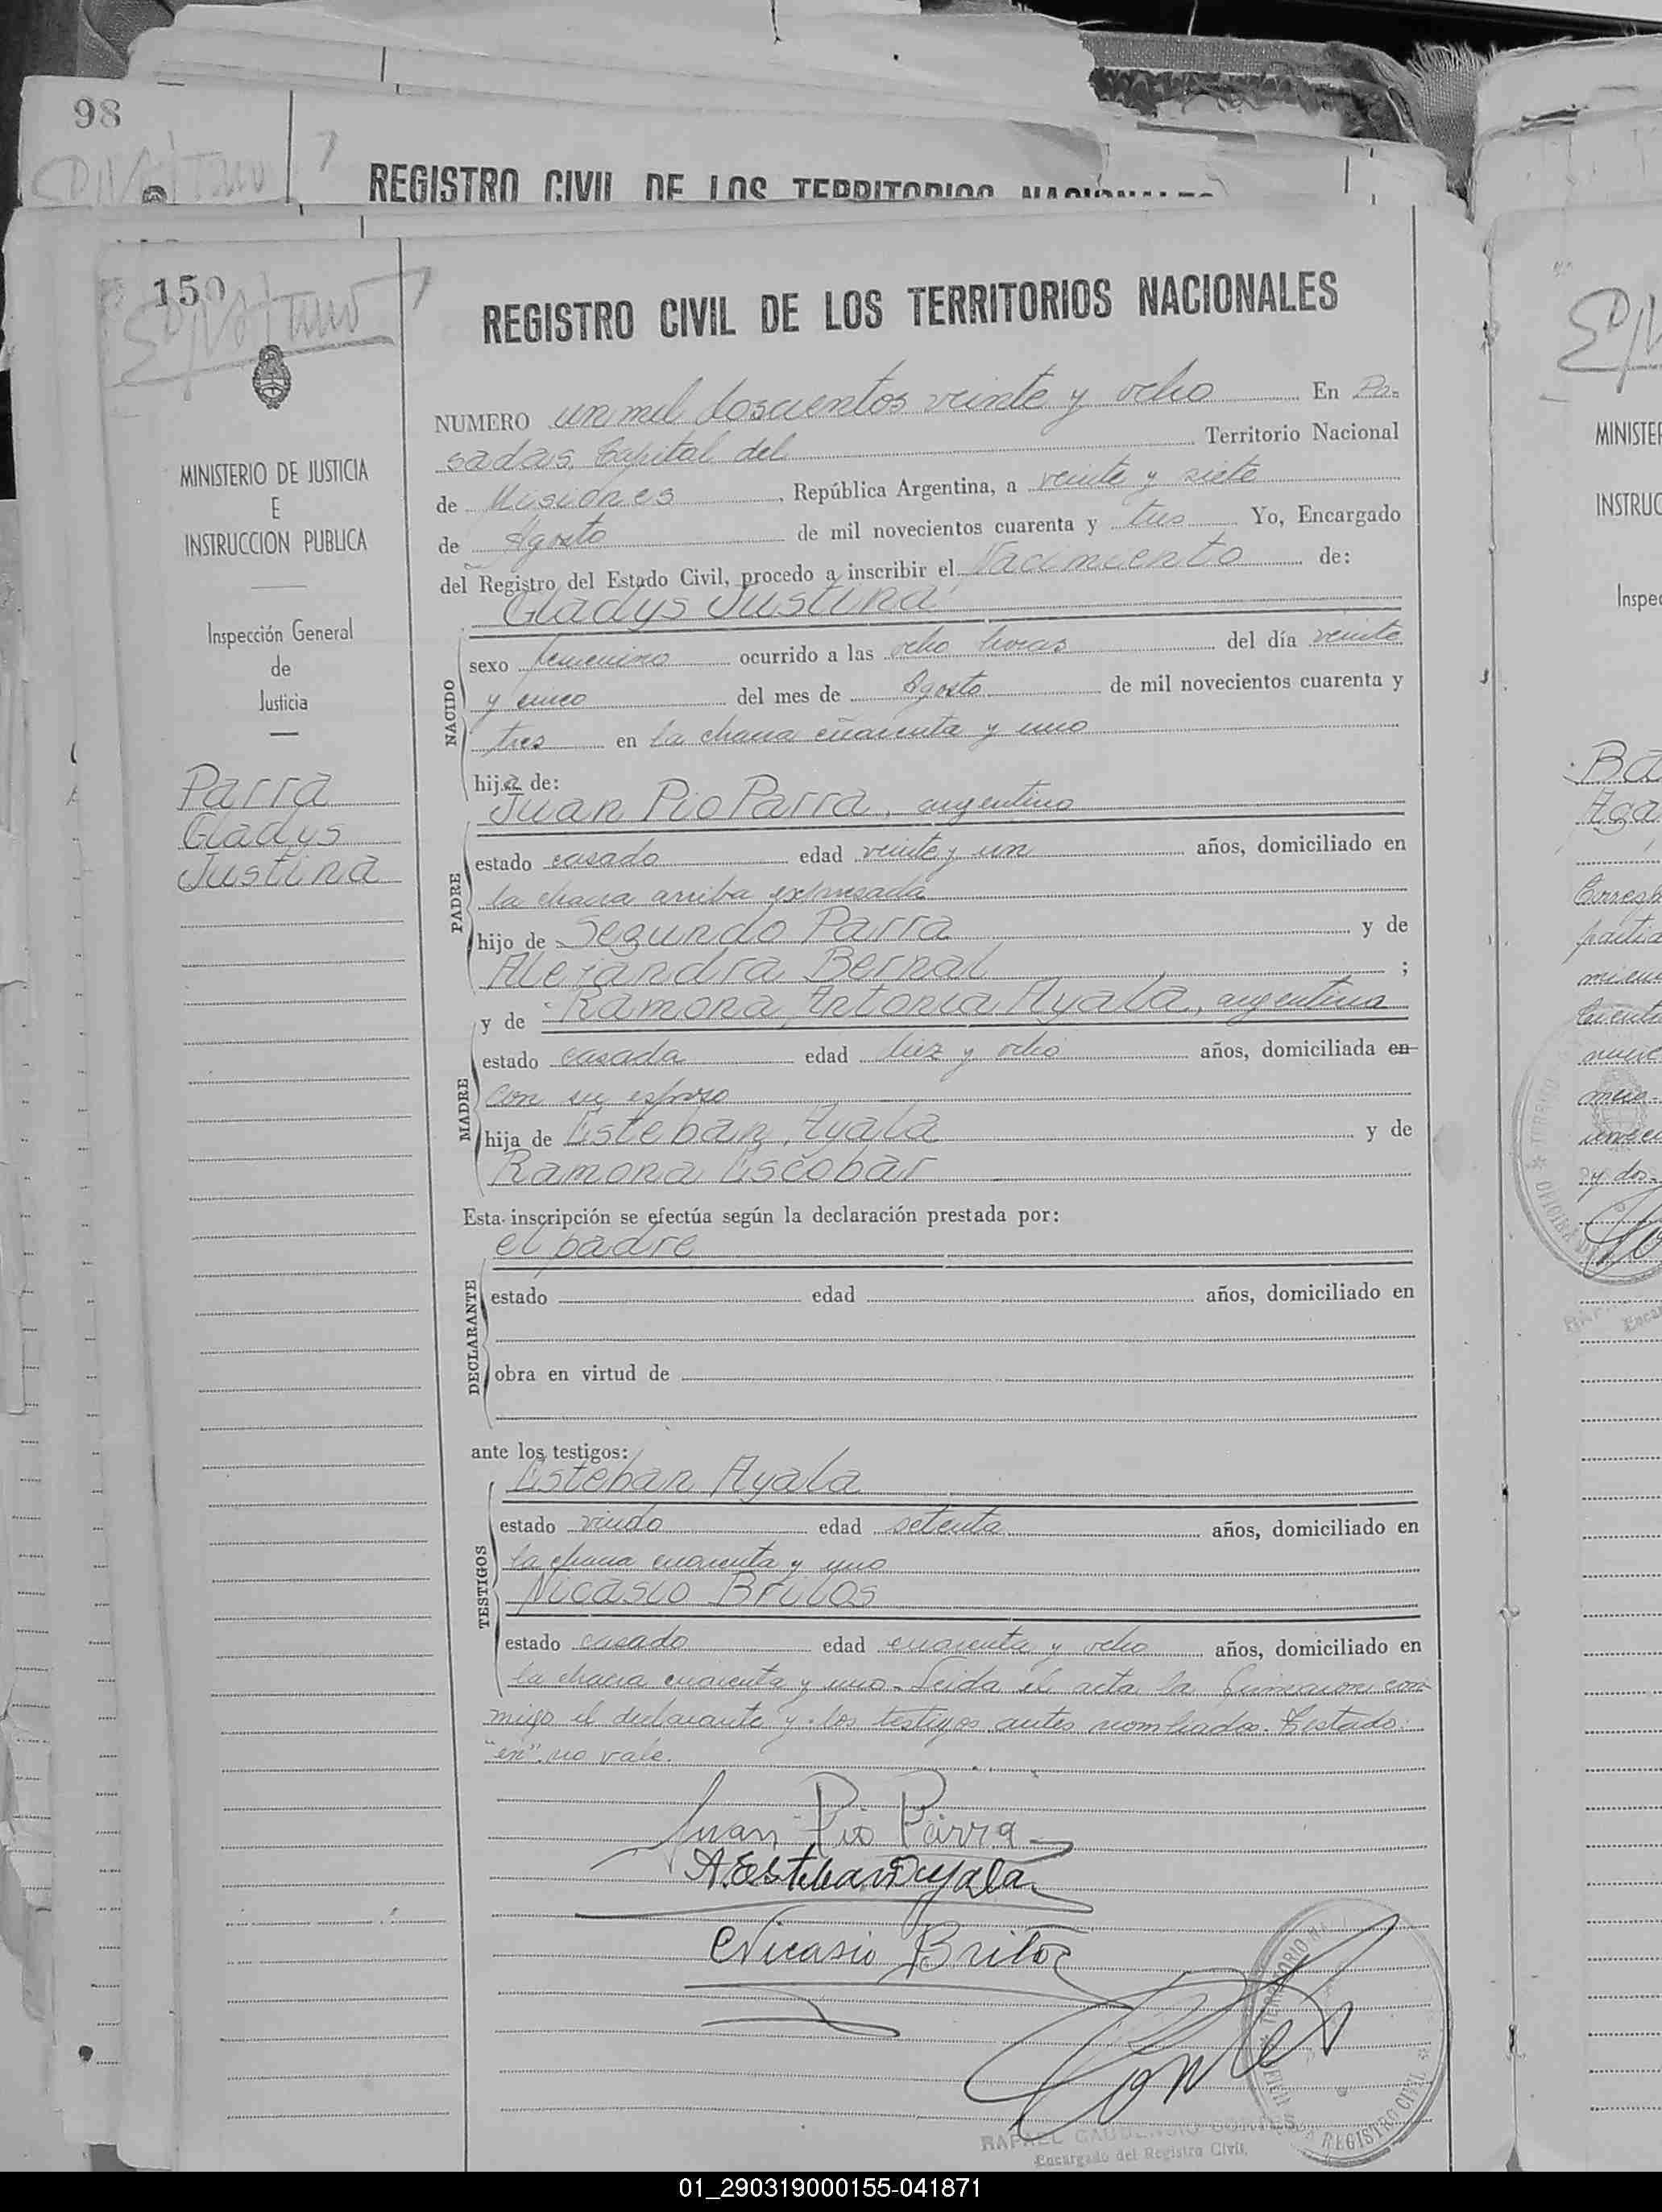 98
REGISTRO CIVIL DE LOS TERRITORIOS NACIONALES
150
MINISTERIO DE JUSTICIA
E
INSTRUCCION PUBLICA
Inspección General
de
Justicia
Parra
Gladys
Justina
REGISTRO CIVIL DE LOS TERRITORIOS NACIONALES
NUMERO un mil doscientos veinte y ocho En Po-
sadas, Capital del Territorio Nacional
de Misiones, República Argentina, a veinte y siete
de Agosto de mil novecientos cuarenta y tres Yo, Encargado
del Registro del Estado Civil, procedo a inscribir el Nacimiento de:
Gladys Justina
NACIDO
sexo femenino ocurrido a las ocho horas del día veinte
y cinco del mes de Agosto de mil novecientos cuarenta y
tres en la chacra cuarenta y uno
hija de:
Juan Pio Parra, argentino
PADRE
estado casado edad veinte y un años, domiciliado en
la chacra arriba expresada
hijo de Segundo Parra y de
Alejandra Bernal ;
y de Ramona Antonia Ayala, argentina
MADRE
estado casada edad diez y ocho años, domiciliada en
con su esposo
hija de Esteban Ayala y de
Ramona Escobar
Esta inscripción se efectúa según la declaración prestada por:
el padre
DECLARANTE
estado edad años, domiciliado en
obra en virtud de
ante los testigos:
Esteban Ayala
TESTIGOS
estado viudo edad setenta años, domiciliado en
la chacra cuarenta y uno
Nicasio Britos
estado casado edad cuarenta y ocho años, domiciliado en
la chacra cuarenta y uno. Leida el acta la firmaron con-
migo el declarante y los testigos antes nombrados. Testado:
"en" no vale.
Juan Pio Parra
A. Esteban Ayala
Nicasio Britos
Cortes
RAFAEL GAUDENSIO CORTES
Encargado del Registro Civil
REGISTRO CIVIL
MINISTER
INSTRUC
Inspec
01_290319000155-041871